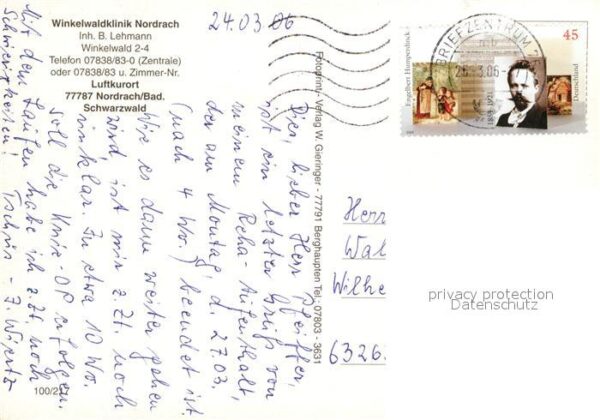 Winkelwaldklinik Nordrach
Inh. B. Lehmann
Winkelwald 2-4
Telefon 07838/83-0 (Zentrale)
oder 07838/83 u. Zimmer-Nr.
Luftkurort
77787 Nordrach/Bad.
Schwarzwald
24.03.06
Dir, lieber Herr Pfeiffer,
ist ein letzter Gruß von
meinem Reha-Aufenthalt,
der am Montag, d. 27.03.
(nach 4 Wo.) beendet ist.
Wie es dann weiter gehen
wird, ist mir z. Zt. noch
unklar. In etwa 10 Wo.
soll die Knie-OP erfolgen.
Mit dem Laufen habe ich z. Zt. noch
Schwierigkeiten! Tschüs -
100/217
Fotoprint/Verlag W. Gieringer - 77791 Berghaupten Tel. 07803 - 3631
Engelbert Humperdinck
1854-1921
Deutschland
45
BRIEFZENTRUM
Herr
Wal
Wilhe
6326
privacy protection
Datenschutz